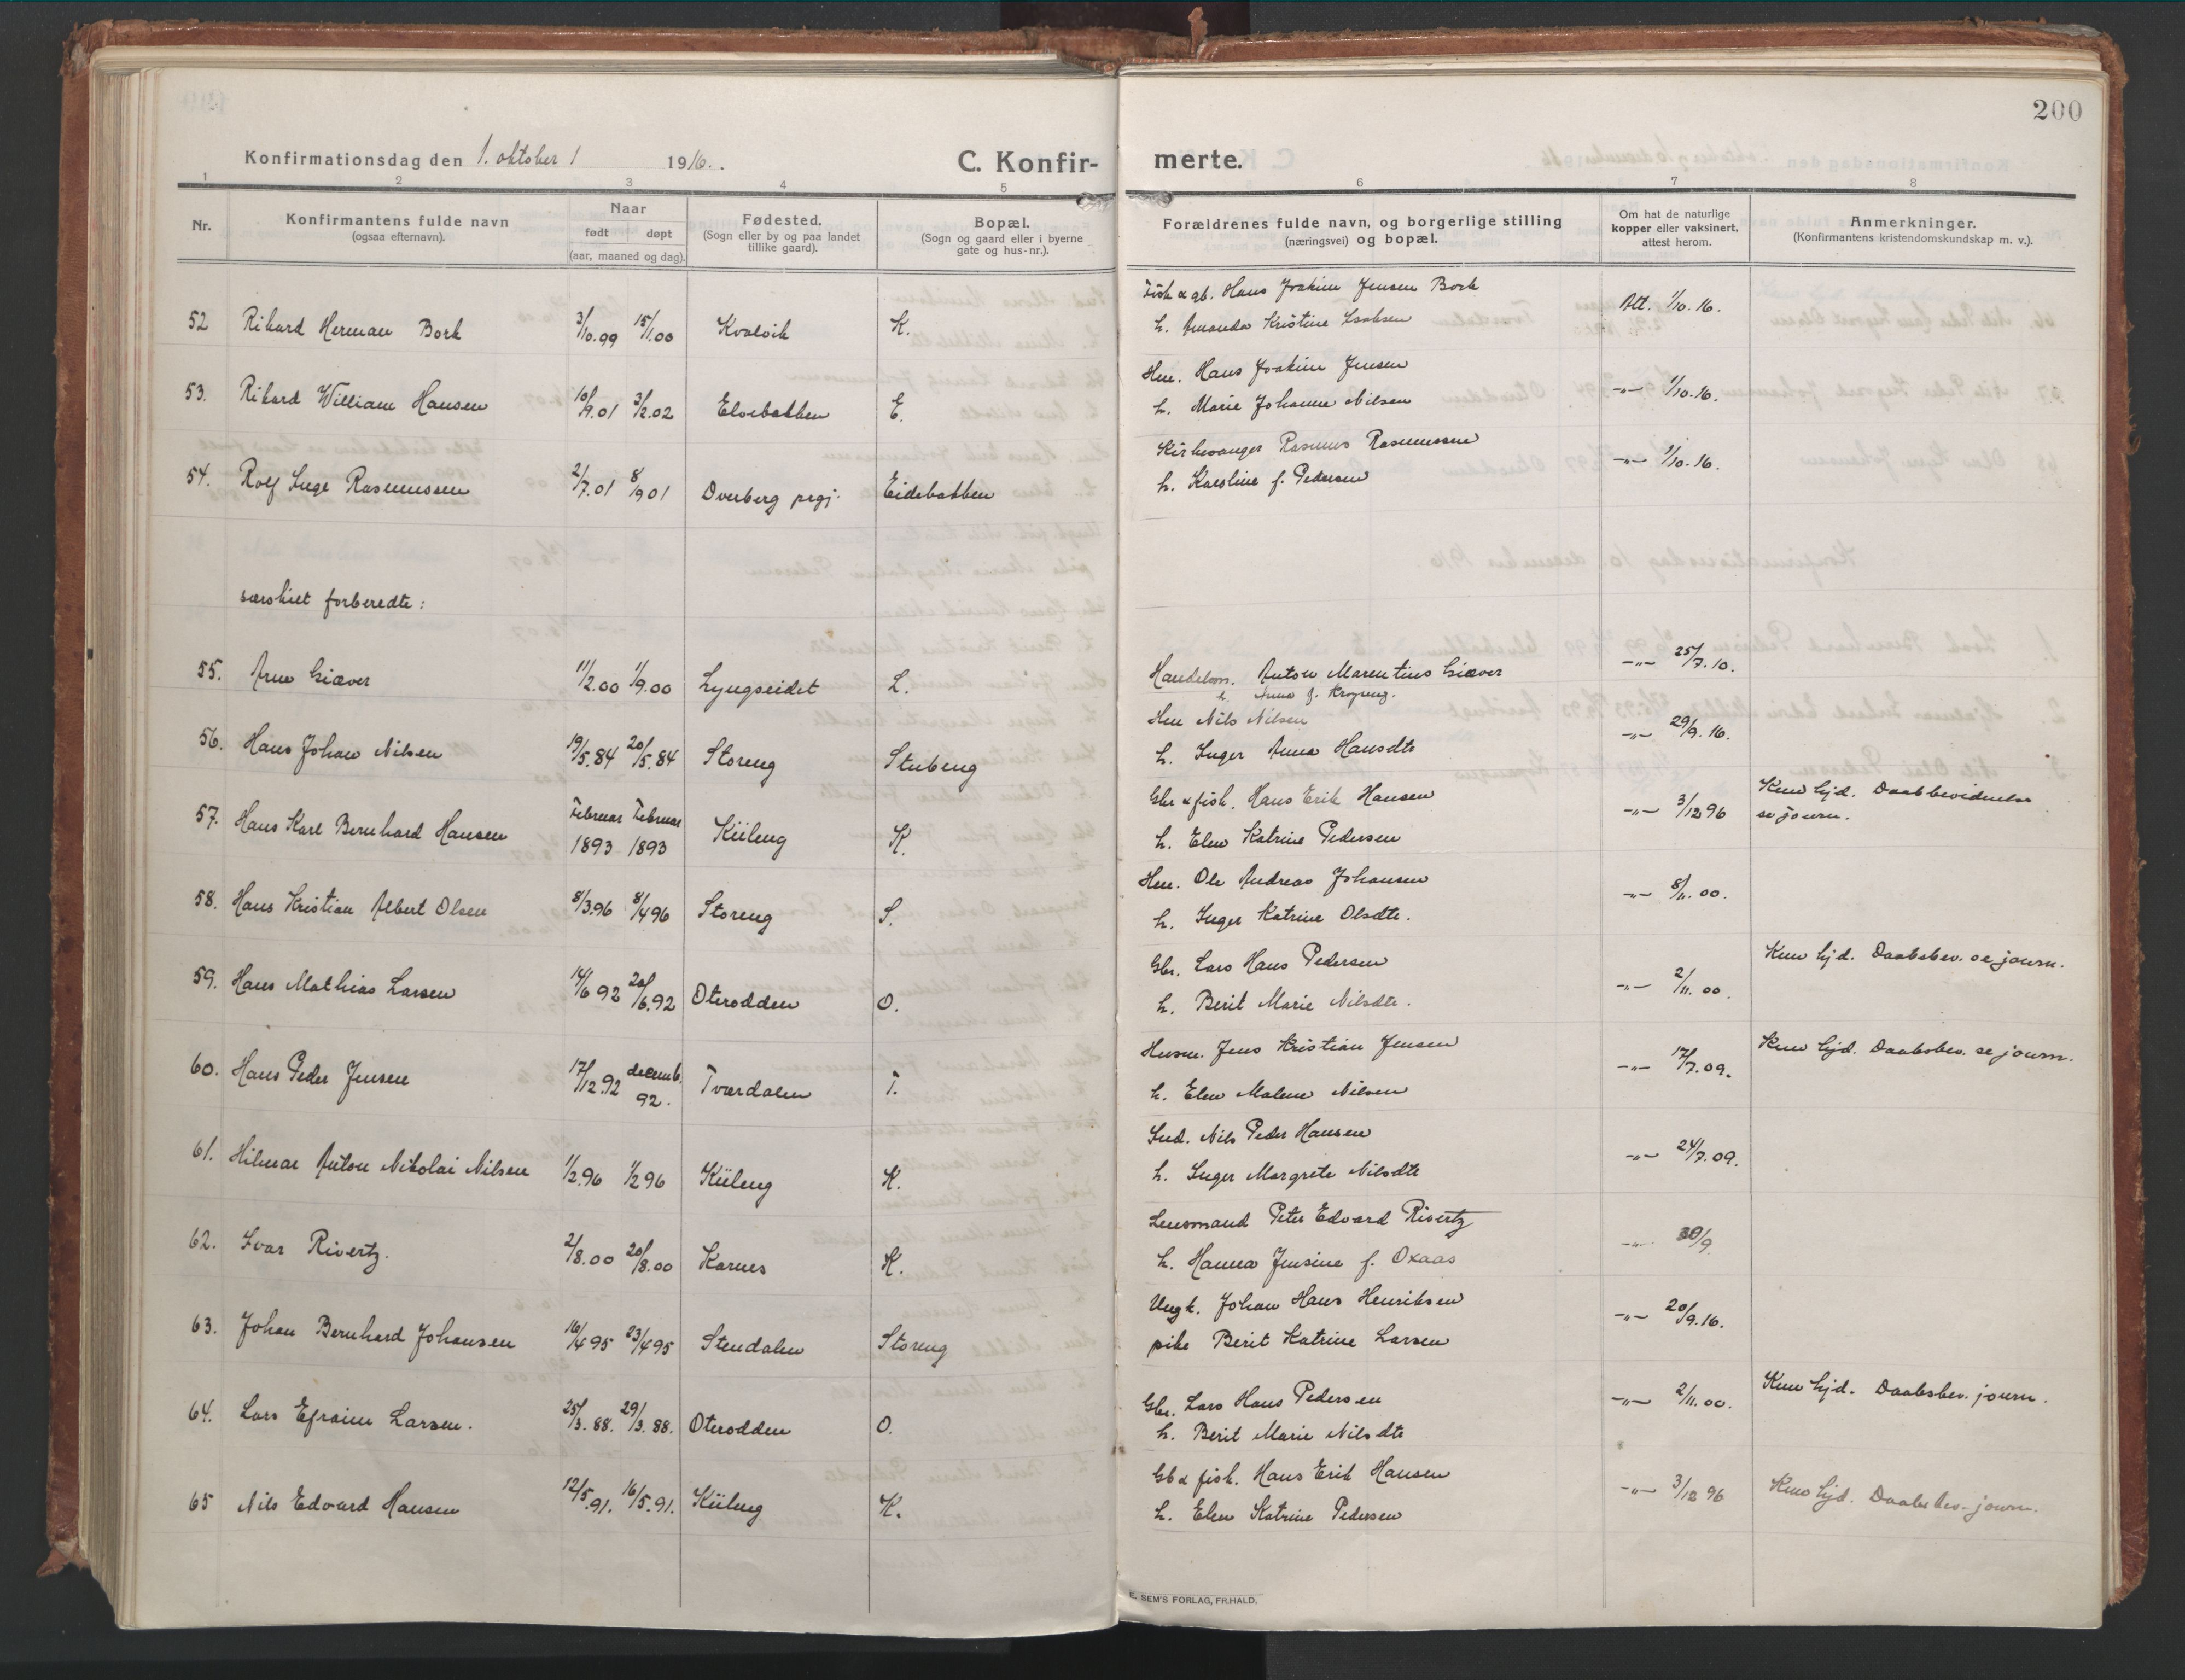 200
Konfirmationsdag den 1. oktober 1 1916.
C. Konfir-
merte.
1 2 3 4 5 6 7 8
Nr.
Konfirmantens fulde navn
(ogsaa efternavn).
Naar
født døpt
(aar, maaned og dag).
Fødested.
(Sogn eller by og paa landet
tillike gaard).
Bopæl.
(Sogn og gaard eller i byerne
gate og hus-nr.).
Forældrenes fulde navn, og borgerlige stilling
(næringsvei) og bopæl.
Om hat de naturlige
kopper eller vaksinert,
attest herom.
Anmerkninger.
(Konfirmantens kristendomskundskap m. v.).
Fisk & gb. Hans Joakim Jensen Bork
52 Rikard Herman Bork 3/10.99 15/1.00 Kvalvik K. Att. 1/10.16.
h. Amanda Kristine Isaksen
Hm. Hans Joakim Jensen
53. Rikard William Hansen 10/9.01 3/2.02 Elvebakken E. -"- 1/10.16.
h. Marie Johanne Nilsen
Kirkesanger Rasmus Rasmussen
54. Rolf Inge Rasmussen 2/7.01 8/9 01 Dverberg prgj. Eidebakken -"- 1/10.16.
h. Karoline f. Pedersen
særskilt forberedte:
55. Arne Giæver 11/2.00 1/9.00 Lyngseidet L. Handelsm. Anton Marentius Giæver -"- 25/7.10.
h. Anna f.
56. Hans Johan Nilsen 19/5.84 20/5.84 Storeng Stubeng Hm Nils Nilsen -"- 29/9.16.
h. Inger Anna Hansdtr
57. Hans Karl Bernhard Hansen Februar 1893 Februar 1893 Kiileng K. Gbr & fisk. Hans Erik Hansen -"- 3/12 96 Kun hjd. Daabbevidnelse
h. Elen Katrine Pedersen
se journ.
58. Hans Kristian Albert Olsen 8/3.96 8/4 96 Storeng S. Hm. Ole Andreas Johansen -"- 8/11.00.
h. Inger Katrine Olsdtr.
59. Hans Mathias Larsen 14/6 92 20/6.92 Oterodden O. Gbr. Lars Hans Pedersen -"- 2/11.00. Kun hjd. Daabsbev. se journ.
h. Berit Marie Nilsdtr.
60. Hans Peder Jensen 17/12.92 decemb. 92. Tværdalen T. Husm. Jens Kristian Jensen -"- 17/7.09. Kun hjd. Daabsbev. se journ.
h. Elen Malene Nilsen
61. Hilmar Anton Nikolai Nilsen 1/2.96 1/2 96 Kiileng K. Ind. Nils Peder Hansen -"- 24/7.09.
h. Inger Margrete Nilsdtr
62. Ivar Rivertz. 2/8.00 20/8.00 Karnes K. Lensmand Peter Edvard Rivertz -"- 30/9
h. Hanna Jensine f. Oxaas
63. Johan Bernhard Johansen 16/4 95 23/4 95 Stendalen Storeng Ungk. Johan Hans Henriksen -"- 20/9.16.
pike Berit Katrine Larsen
64. Lars Efraim Larsen. 25/3.88. 29/3.88. Oterodden O. Gbr. Lars Hans Pedersen -"- 2/11.00. Kun hjd. Daabsbev. journ.
h. Berit Marie Nilsdtr
65 Nils Edvard Hansen 12/5.91. 16/5.91. Kiileng K. Gb & fisk. Hans Erik Hansen -"- 3/12 96 Kun hjd. Daabsbev. journ.
h. Elen Katrine Pedersen
E. SEM'S FORLAG, FR.HALD.